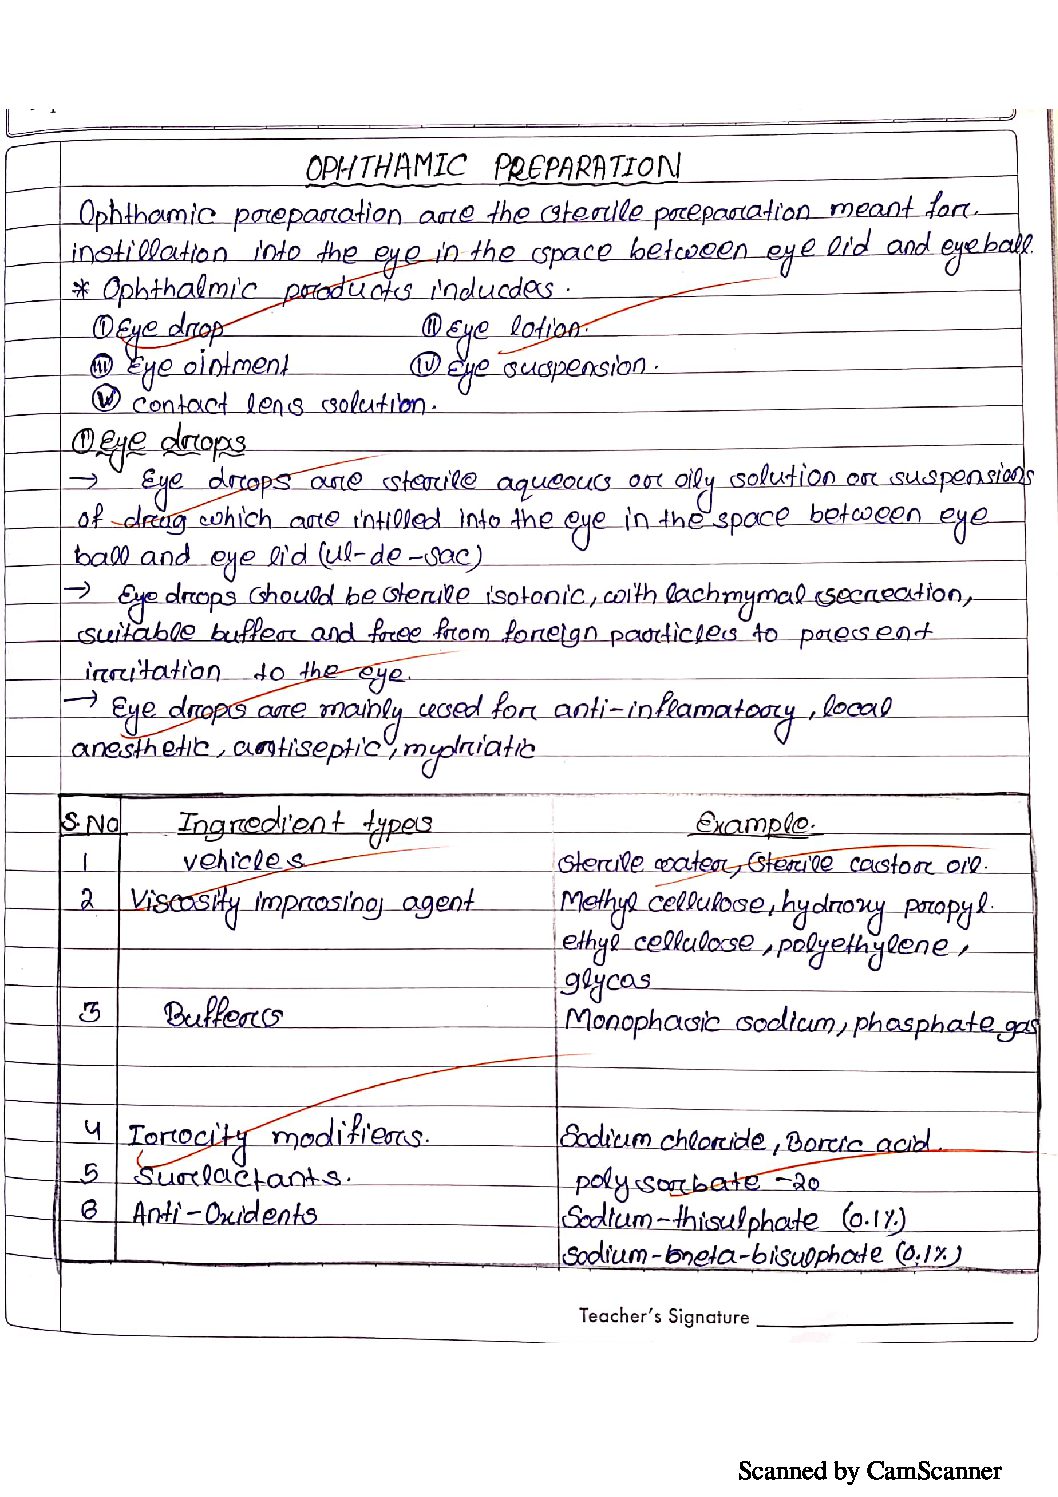 OPHTHAMIC PREPARATION
Ophthamic preparation are the sterile preparation meant for
instillation into the eye in the space between eye lid and eyeball.
* Ophthalmic products inducdes.
(i) Eye drop (ii) Eye lotion.
(iii) Eye ointment (iv) Eye suspension.
(v) contact lens solution.
(i) Eye drops
→ Eye drops are sterile aqueous or oily solution or suspensions
of drug which are intilled into the eye in the space between eye
ball and eye lid (ul-de-sac)
→ Eye drops should be sterile isotonic, with lachmymal secreation,
suitable buffer and free from foreign particles to present
irritation to the eye.
→ Eye drops are mainly used for anti-inflamatoory, local
anesthetic, antiseptic, mydriatic
S.No Ingredient types Example.
1 vehicles Sterile water, Sterile castor oil.
2 Viscosity imprrosing agent Methyl cellulose, hydroxy propyl.
ethyl cellulose, polyethylene,
glycas
3 Buffers Monophasic sodium, phosphate gas
4 Tonocity modifiers. Sodium chloride, Borcic acid.
5 Surlactants. poly sorbate -20
6 Anti-Oxidents Sodium-thisulphate (0.1%)
Sodium-meta-bisulphate (0.1%)
Teacher's Signature
Scanned by CamScanner